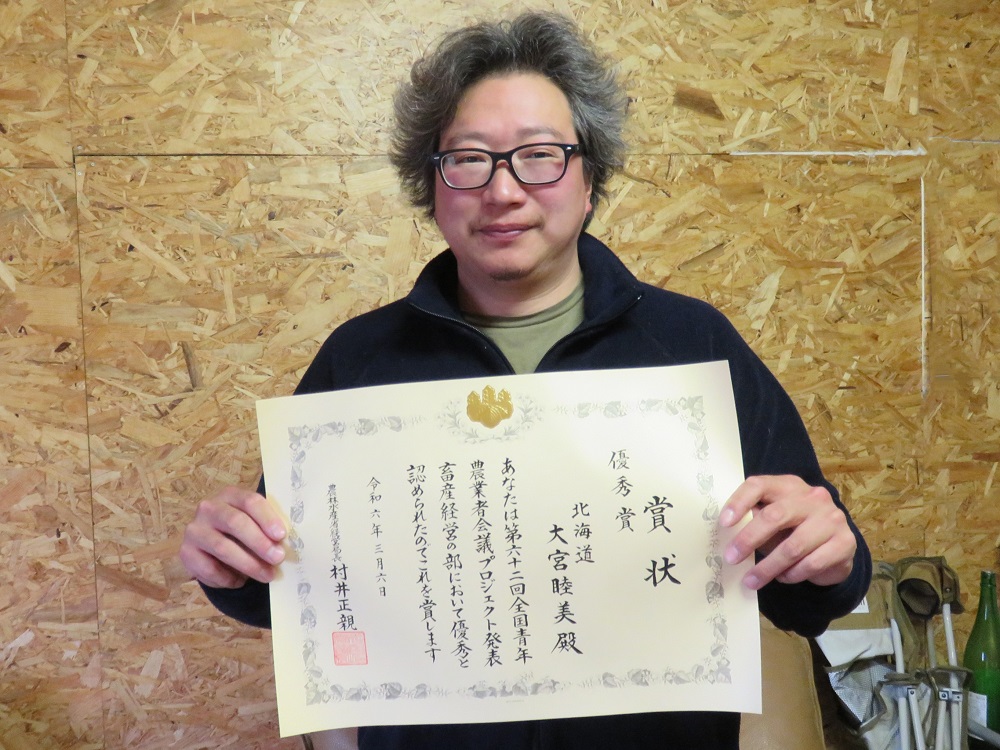 賞状
優秀賞
北海道
大宮睦美殿
あなたは第六十二回全国青年
農業者会議プロジェクト発表
畜産経営の部において優秀と
認められたのでこれを賞します
令和六年三月六日
農林水産省経営局長 村井正親